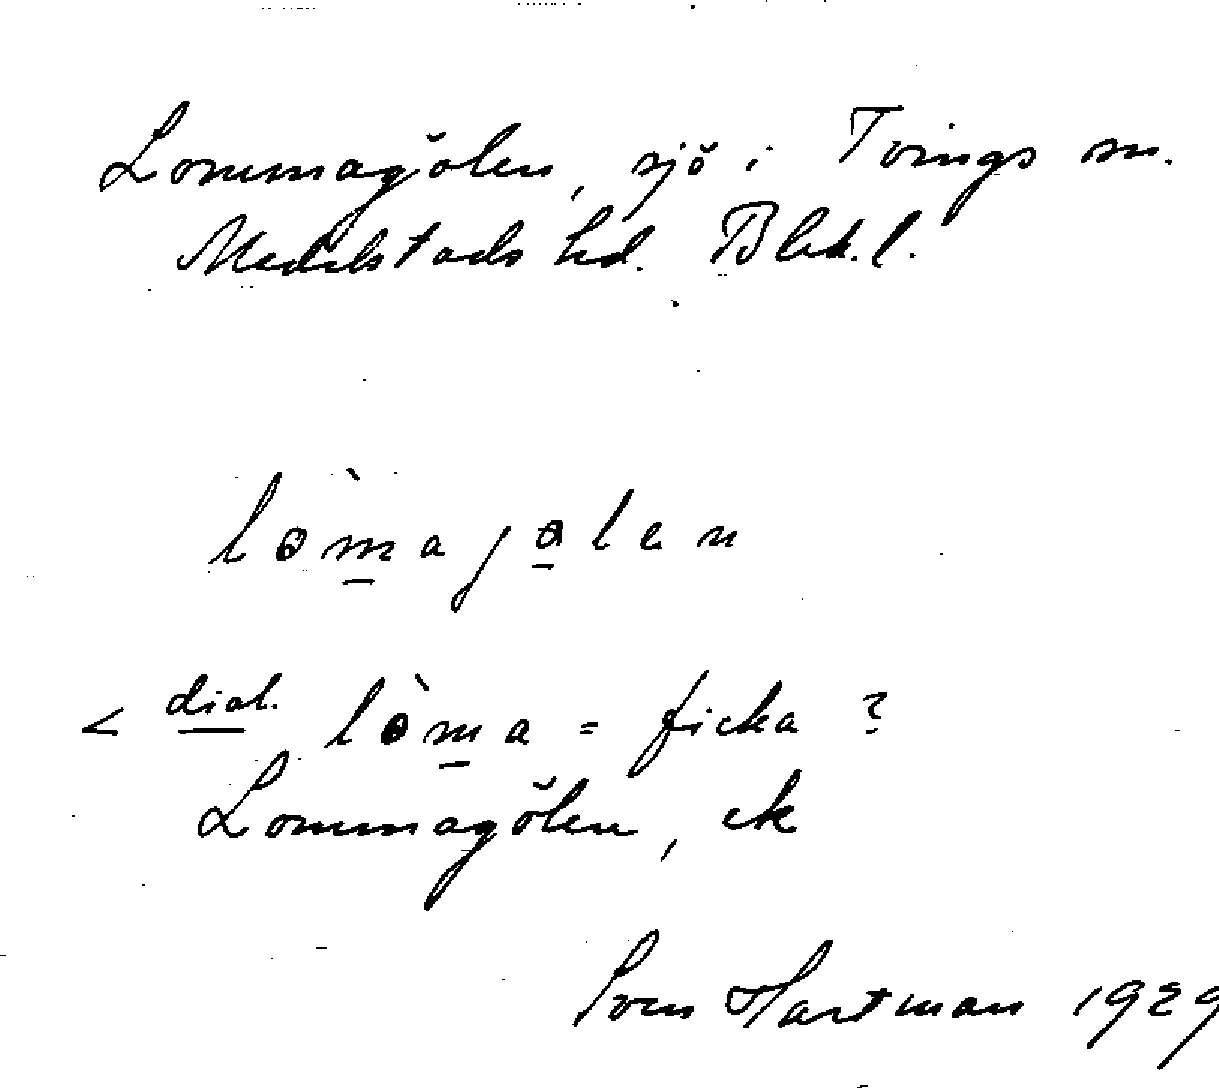 Lommagölen, sjö i Tvings sn.
Medelstads hd. Blek.l.
lòmajɵlen
< dial. lòma = ficka ?
Lommagölen, ek
Sven Hartman 1929